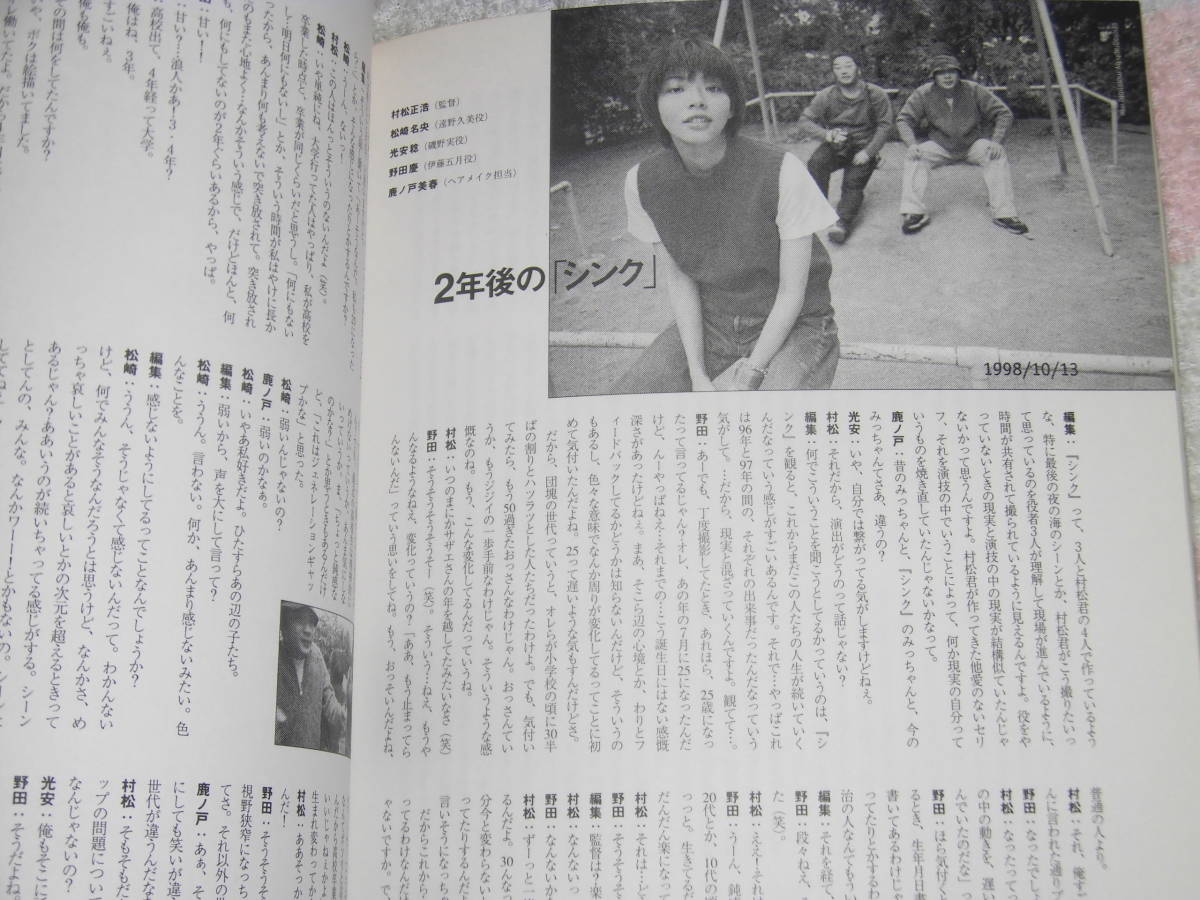 村松正浩(監督)
松崎名央(遠野久美役)
光安稔(磯野実役)
野田慶(伊藤五月役)
鹿ノ戸美春(ヘアメイク担当)
2年後の「シンク」
1998/10/13
編集:『シンク』って、3人と村松君の4人で作っているよう
な、特に最後の夜の海のシーンとか、村松君がこう撮りたいっ
て思っているのを役者3人が理解して現場が進んでいるように、
時間が共有されて撮られているように見えるんですよ。役をや
っていないときの現実と演技の中の現実が結構似ていたんじゃ
ないかって思うんですよ。村松君が作ってきた他愛のないセリ
フ、それを演技の中でいうことによって、何か現実の自分って
いうものを焼き直していたんじゃないかなって。
鹿ノ戸:昔のみっちゃんと、『シンク』のみっちゃんと、今の
みっちゃんてさあ、違うの?
光安:いや、自分では繋がってる気がしますけどねぇ。
村松:それだから、演出がどうのって話じゃない?
編集:何でこういうことを聞こうとしてるかっていうのは、『シ
ンク』を観ると、これからまだこの人たちの人生が続いていく
んだなっていう感じがすごいあるんです。それで…やっぱこれ
は96年と97年の間の、それぞれの出来事だったんだなっていう
気がして。…だから、現実と混ざっていくんですよ。観てて…。
野田:あーでも、丁度撮影してたとき、あれほら、25歳になっ
たって言ってるじゃん?オレ、あの年の7月に25になったんだ
けど、んーやっぱねえ…それまでの…こう誕生日にはない感慨
深さがあったけどねぇ。まあ、そこら辺の心境とか、わりとフ
ィードバックしてるかどうかは知らないんだけど、そういうの
もあるし、色々な意味でなんか周りが変化してるってことに初
めて気付いたんだよね。25って遅いような気もすんだけどさ。
だから、団塊の世代っていうと、オレらが小学校の頃に30半
ばの割りとハツラツとした人たちだったわけよ。でも、気付い
てみたら、もう50過ぎたおっさんなわけじゃん。おっさんてい
うか、もうジジイの一歩手前なわけじゃん。そういうような感
慨なのね。もう、こんな変化してるんだっていうね。
村松:いつのまにかサザエさんの年を越してたみたいなさ(笑)
野田:そうそうそうそうそー(笑)。そういう…ねえ、もうや
んなるようなねえ、変化っていうの?「ああ、もう止まってら
んないんだ」っていう思いをしてね。もう、おっそいんだよね、
普通の人より。
村松:それ、俺す
んに言われた通りブ
野田:なったでし
村松:なったって
の中の動きを、遅い
んでいたのだな」っ
野田:ほら気付くと
るとき、生年月日書
書いてあるわけじゃ
ってたりとかするわ
治の人なんてもうい
編集:それを経て、
野田:段々ねえ、
た(笑)。
村松:ええ!それは
野田:うーん、鈍
20代とか、10代の頃
っっと。生きてるだ
だんだん楽になって
村松:それは…ど
野田:そうそうそ
編集:監督は?楽
村松:なんないっ
野田:なんないか
村松:ずーっと一
るんだよ。30なん
分今と変わらない
ってたりするんだ
言いそうになっち
だからこれから
ってるわけなんだ
ゃないですか。で、
松崎:うーん。ないっ!
村松:この人はほんっとそういうのないんだよ(笑)。
松崎:いや単純にね、大学行ってた人はやっぱり、私が高校を
卒業した時点と、卒業が同じくらいだと思うし。「何にもない
し…明日何にもないし」とか、そういう時間が私はやけに長か
ったから、あんまり何も考えないで突き放されて。突き放され
のもまた心地よく…なんかそういう感じで、だけどほんと、何
も、何にもしてないのが2年ぐらいあるから、やっぱ。
:甘い!
:甘い?…浪人かあー3・4年?
:高校出て、4年経って大学。
俺はね、3年。
すごいねぇ。
俺も俺も。
その間は何をしてたんですか?
いや、ボクは絵描いてました。
ど、「これはジェネレーションギャッ
プかな」と思った。
松崎:弱いんじゃないの?
鹿ノ戸:弱いのかなぁ。
松崎:いやあ私好きだよ。ひたすらあの辺の子たち。
編集:弱いから、声を大にして言って?
松崎:ううん。言わない。何か、あんまり感じないみたい。色
んなことを。
編集:感じないようにしてるってことなんでしょうか?
松崎:ううん、そうじゃなくて感じないんだって。わかんない
けど、何でみんなそうなんだろうとは思うけど、なんかさ、め
っちゃ哀しいことがあると哀しいとかの次元を超えるときって
あるじゃん?ああいうのが続いちゃってる感じがする。シーン
としてんの、みんな。なんかワー!とかもないの。シーンと
んだよ!
村松:ああそっか
野田:そうそうそう
視野狭窄になっち
てさ。それ以外の世
鹿ノ戸:あぁ、そ
にしても笑いが違
世代が違うんだなあ
村松:そもそもだ
ップの問題につい
なんじゃないの?
光安:俺もそこに
野田:そうだよね